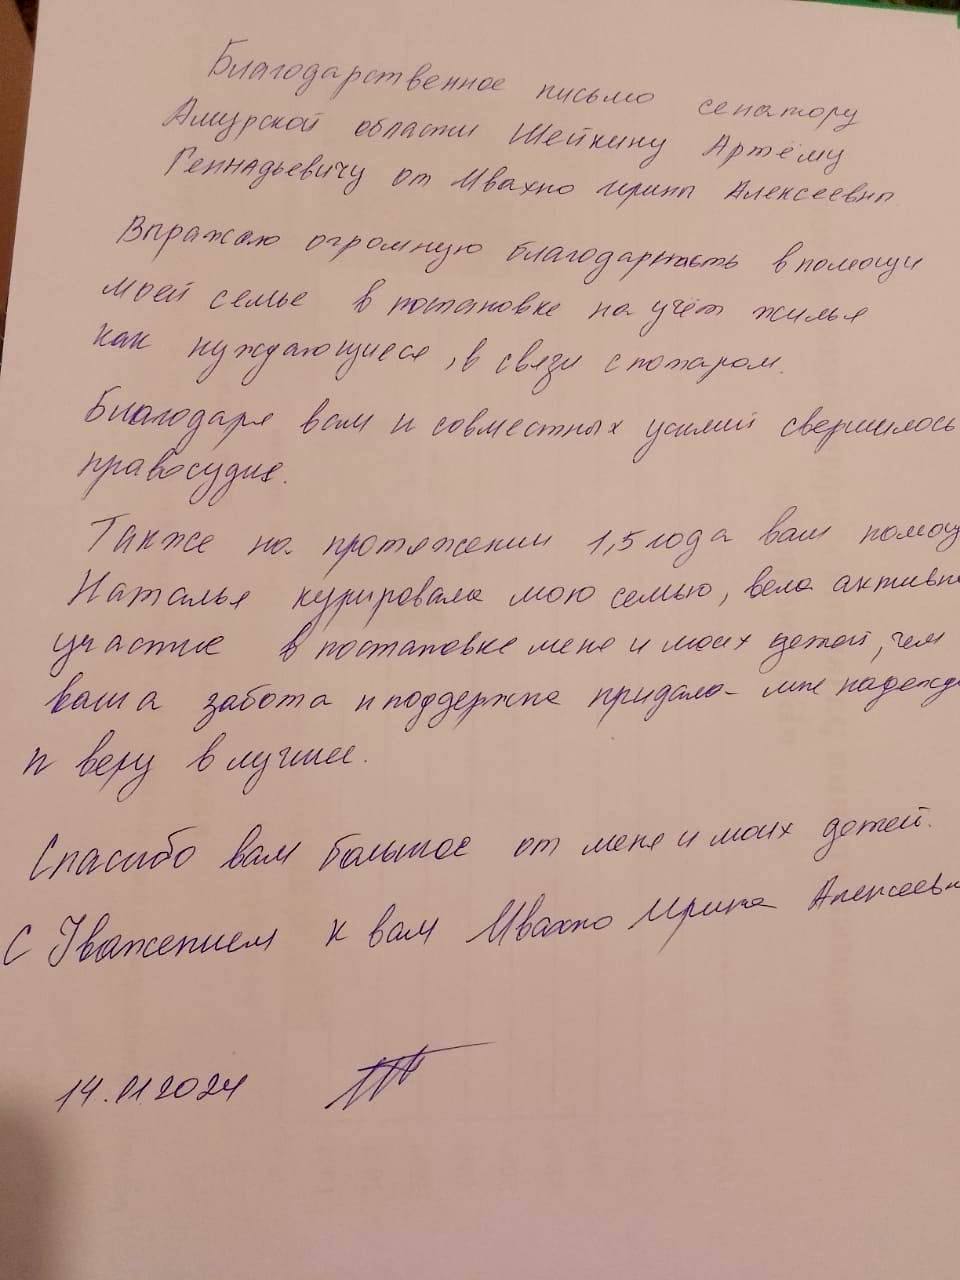 Благодарственное письмо сенатору
Амурской области Шейкину Артёму
Геннадьевичу от Ивахно Ирины Алексеевны
Выражаю огромную благодарность в помощи
моей семье в постановке на учёт жилья
как нуждающиеся, в связи с пожаром.
Благодаря вам и совместных усилий свершилось
правосудие.
Также на протяжении 1,5 года ваш помощ
Наталья курировала мою семью, вела активн
участие в постановке меня и моих детей, чем
ваша забота и поддержка придала мне надежд
и веру в лучшее.
Спасибо вам большое от меня и моих детей.
С Уважением к вам Ивахно Ирина Алексеевн
14.01.2024